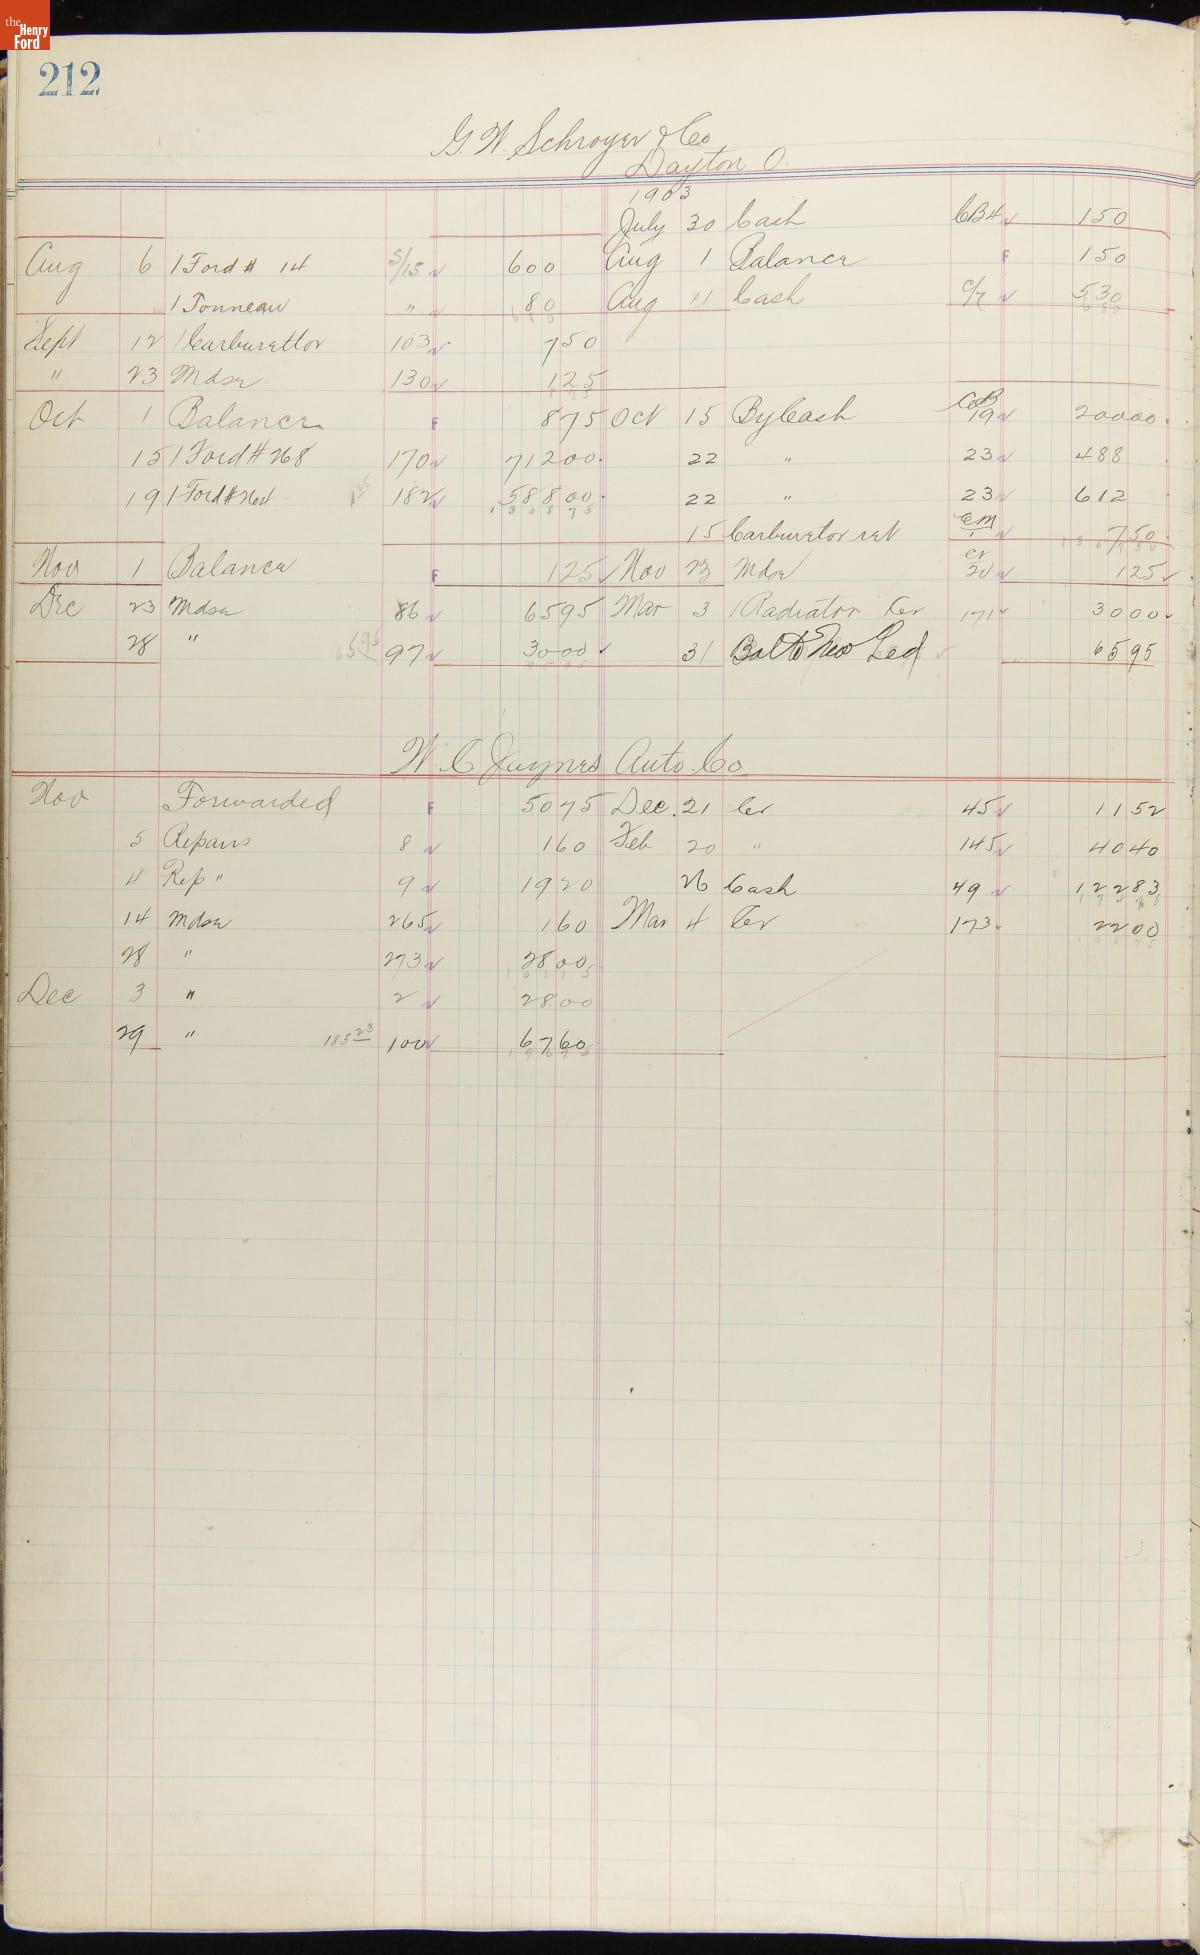 the Henry Ford
212
G. W. Schroyer & Co
Dayton O.
1903
July 30 Cash CB4 150
Aug 6 1 Ford # 14 S/15 600 Aug 1 Balance F 150
1 Tonneau " 80 Aug 11 Cash C/7 530
680 680
Sept 12 1 Carburettor 103 750
" 23 Mdse 130 125
875
Oct 1 Balance F 875 Oct 15 By Cash CoB 19 20000
15 1 Ford # 268 170 71200 22 " 23 488
19 1 Ford # 182 58800 22 " 23 612
130875
15 Carburetor ret CM 1 750
Nov 1 Balance F 125 Nov 23 Mdse Cr 20 125
Dec 23 Mdse 86 6595 Mar 3 1 Radiator Cr 171 3000
28 " 6595 97 3000 31 Bal to New Led 6595
W. C Jaynes Auto Co
Nov Forwarded F 5075 Dec. 21 Cr 45 1152
5 Repairs 8 160 Feb 20 " 145 4040
4 Rep " 9 1920 26 Cash 49 12283
14 Mdse 265 160 Mar 4 Cr 173 2200
28 " 273 2800
Dec 3 " 2 2800
29 " 18523 100 6760